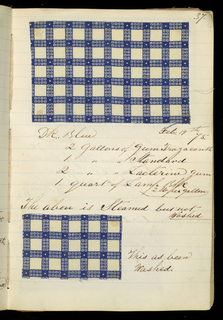 37
Dk Blue Feb. 19th /75
2 Gallons of Gum Tragacanth
1 " " Standard
2 " " Lacterine Gum
1 quart of Lamp
The above is Steamed but not
Washed
This as been
Washed.